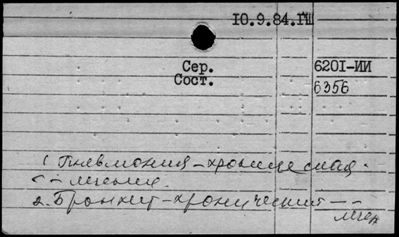 10.9.84.ГШ
Сер. 6201-ИИ
Сост. 6356
1 Пневмония - хроническая.
- лечение.
2. Бронхит - хронический - -
лечен